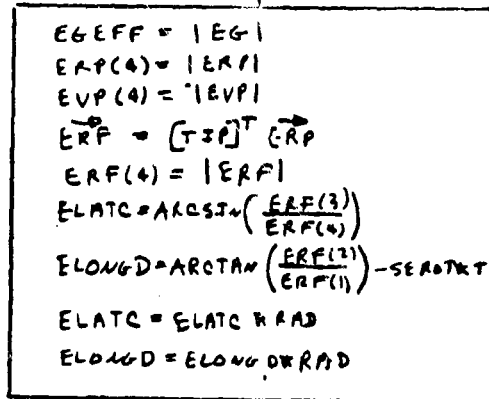 EGEFF = |EG|
ERP(4) = |ERP|
EVP(4) = |EVP|
ERF = [TIP]^T ERP
ERF(4) = |ERF|
ELATC = ARCSIN(ERF(3)/ERF(4))
ELONGD = ARCTAN(ERF(2)/ERF(1)) - SEROT*T
ELATC = ELATC * RAD
ELONGD = ELONGD * RAD